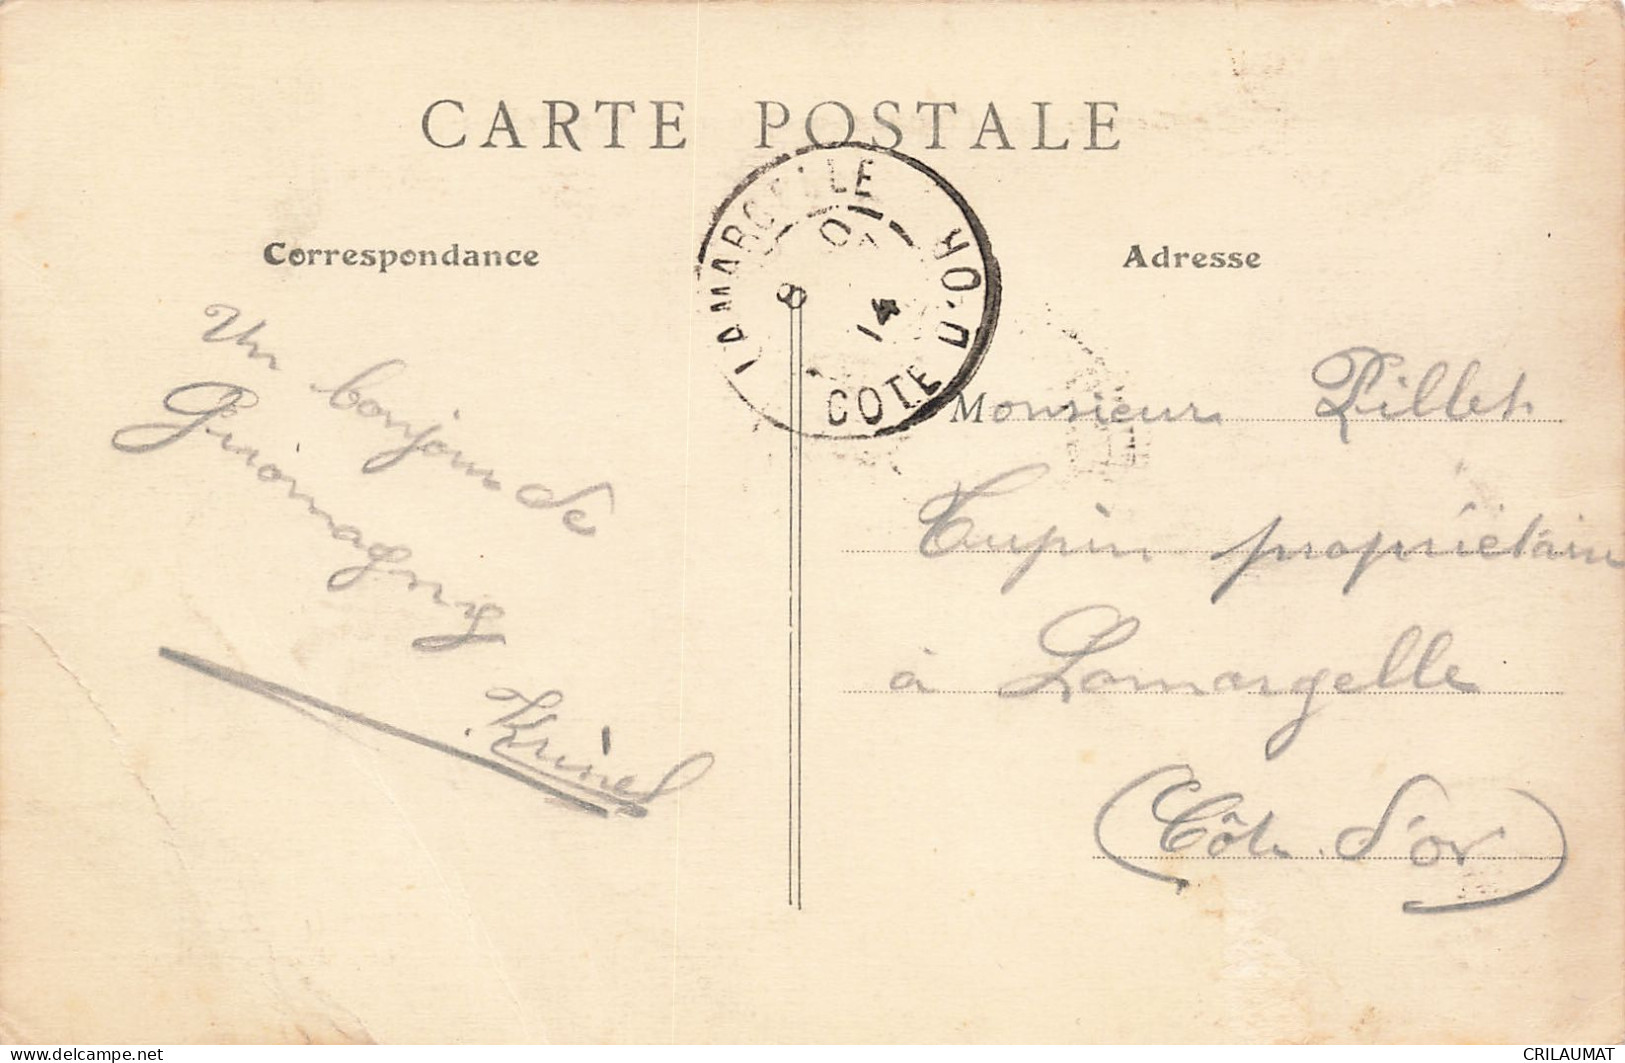 CARTE POSTALE
Correspondance
Adresse
LAMARGELLE
COTE-D'OR
8
14
Un bonjour de
Giromagny
Monsieur Pillet
Tupin propriétaire
à Lamargelle
(Côte d'or)
www.delcampe.net
CRILAUMAT